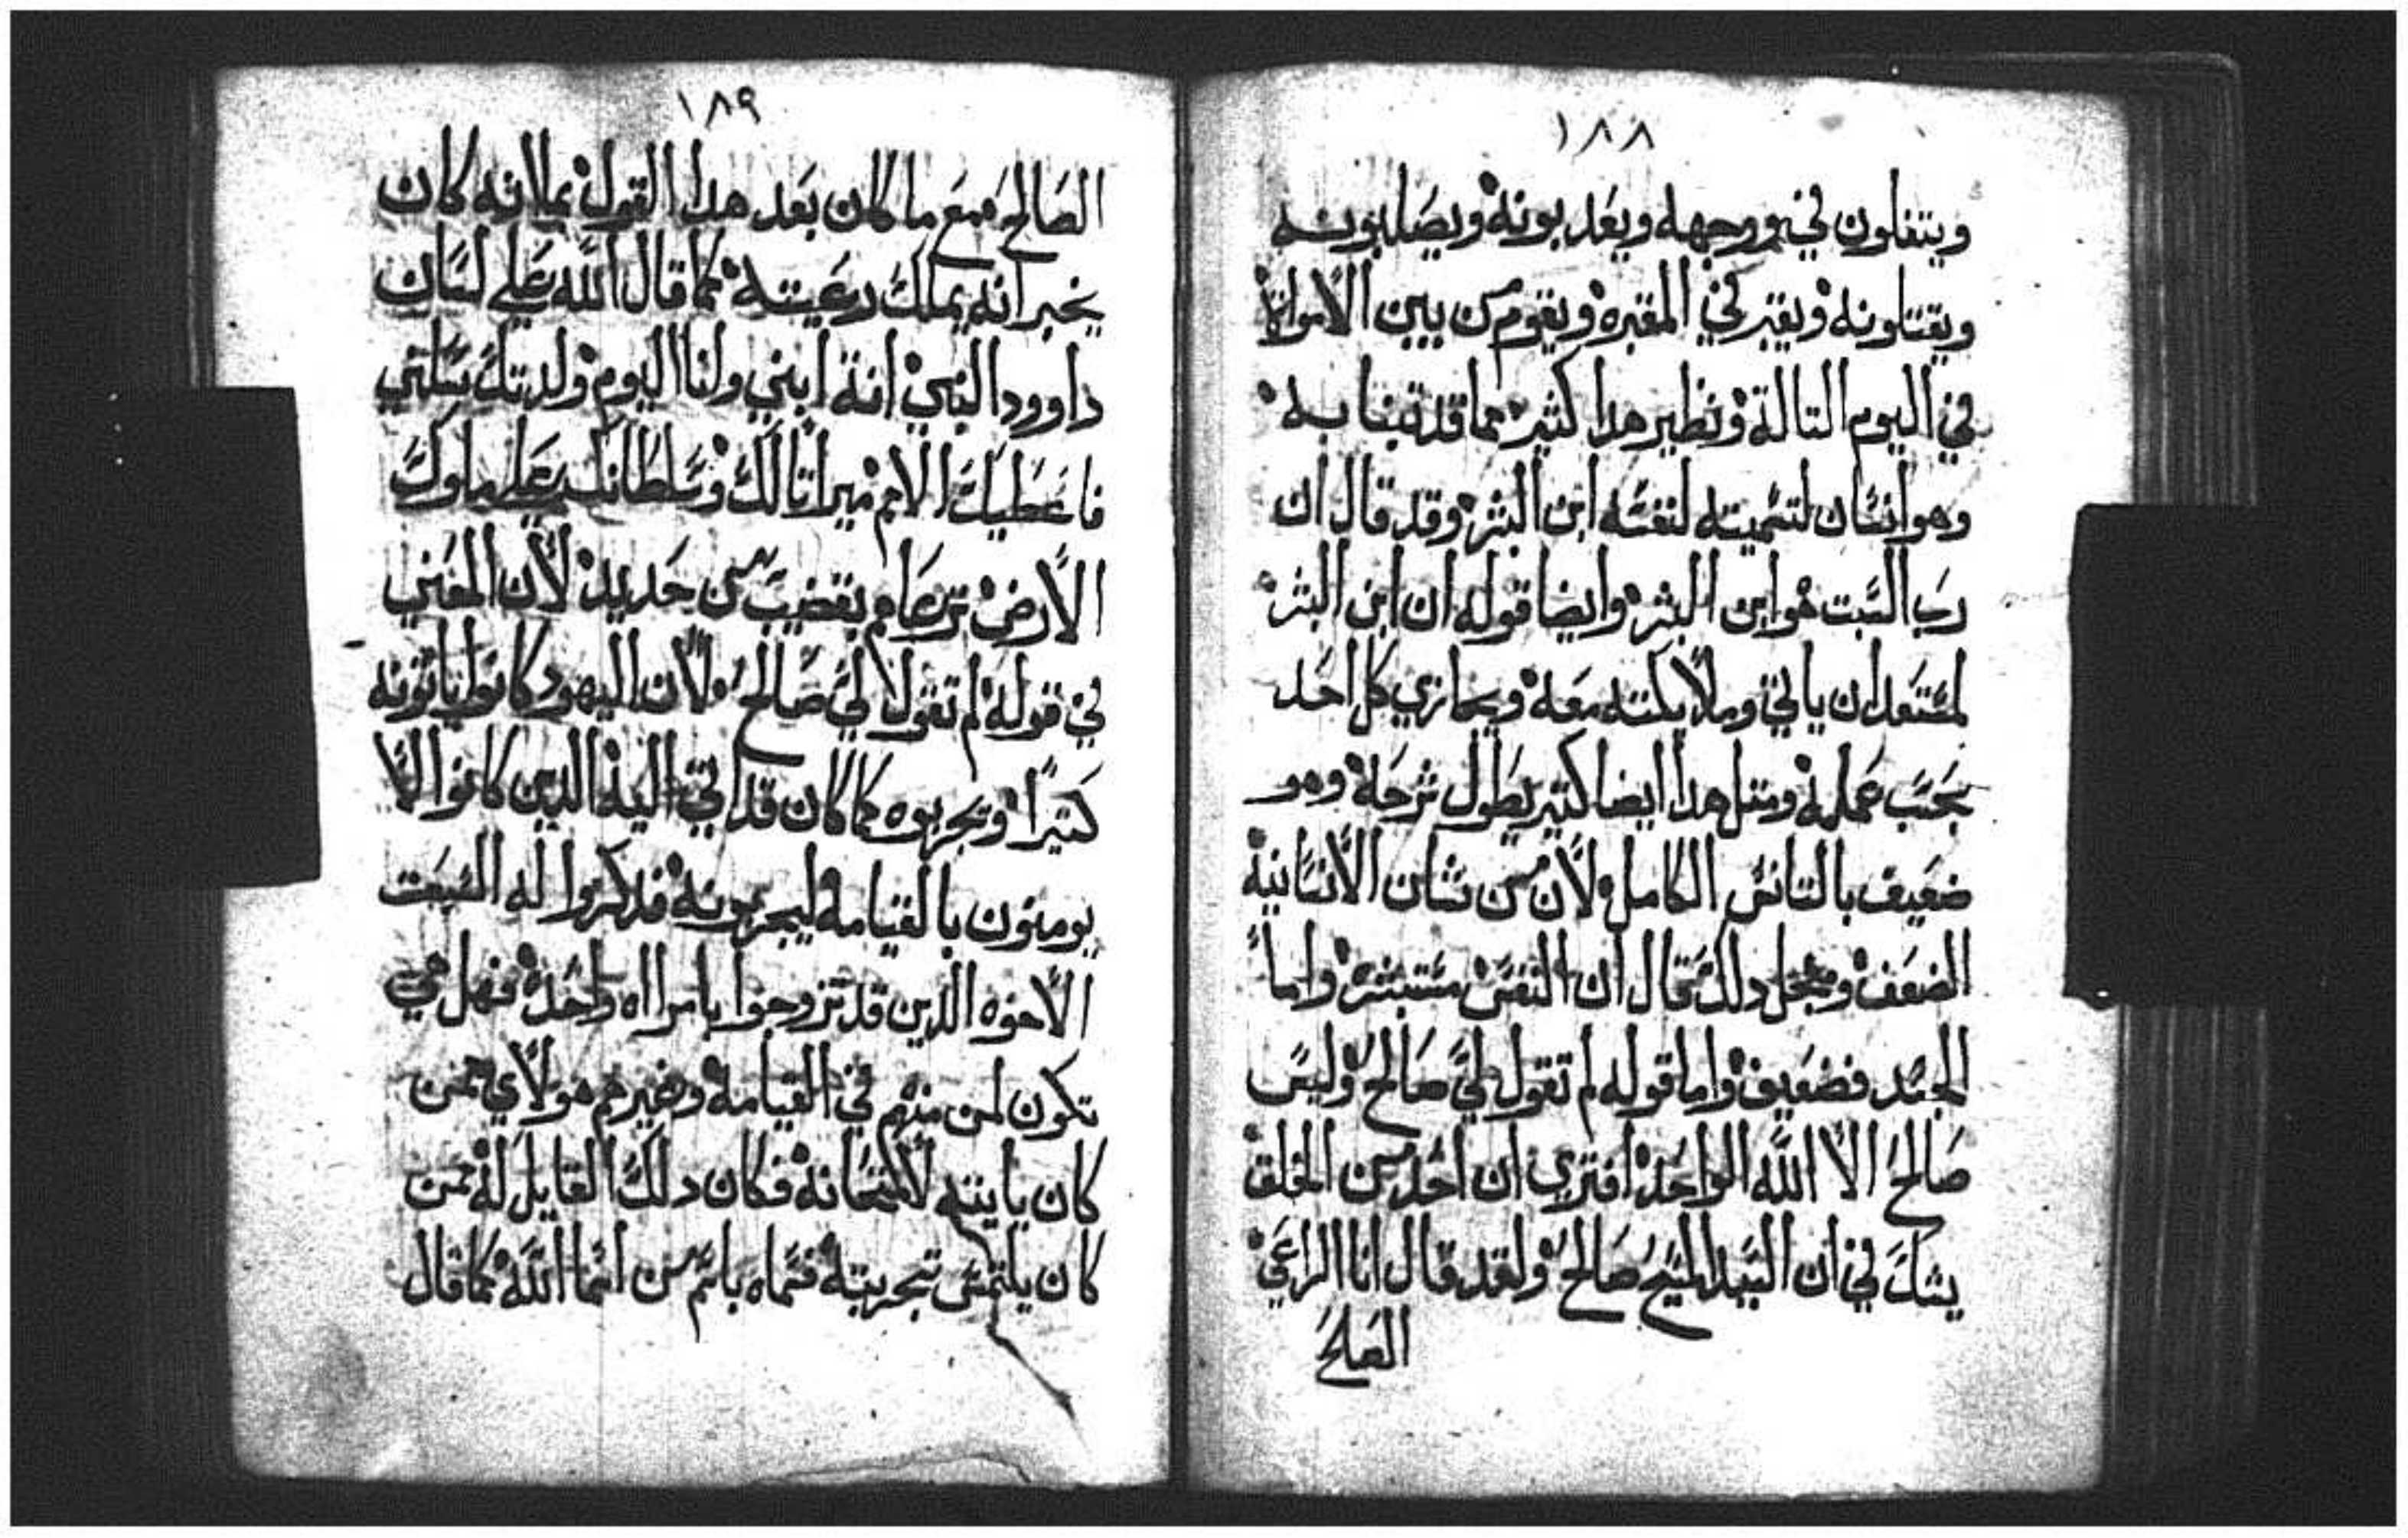 ١٨٨
ويتفلون في وجهه ويعدبونه ويصلبونه
ويقتلونه ويقبر في المقبره ويقوم من بين الاموات
في اليوم التالة ونظير هدا كثير مما قد تنابه
وهو انسان لتسميته لنفسه ابن البشر وقد قال ان
رب السبت هو ابن البشر وايضا قوله ان ابن البشر
لمستعد ان ياتي وملايكته معه ويجازي كل احد
بحسب عمله ومثل هدا ايضا كتير يطول شرحه وهو
ضعيف بالتانس الكامل ولان من شان الانسانية
الضعف ومجل دلك قال ان النفس مستبشره واما
الجسد فضعيف واما قوله لم تقول لي صالح وليس
صالح الا الله الواحد افترى ان احد من الخلق
يشك في ان السيد المسيح صالح ولقد قال انا الراعي
الصالح
١٨٩
الصالح مع ما كان بعد هدا القول بملانه كان
يخبر انه يملك رعيته كما قال الله على لسان
داوود النبي انة ابني وانا اليوم ولدتك سلني
فاعطيك الامم ميراتا لك وسلطانك على ملوك
الارض ترعاهم بقضيب من حديد لان المعني
في قوله لم تقول لي صالح لان اليهود كانوا ياتونه
كتيرا وتجربوه كما كان قد اتي اليه الدين كانوا لا
يومنون بالقيامه ليجربونه فدكروا له السبعت
الاخوه الذين قد تزوجوا بامراه واحده فهل هي
تكون لمن منهم في القيامه وغيرهم هولاي ممن
كان ياتيه لامتحانه فكان دلك القايل له ممن
كان يلتمس تجربته فسماه باسم من اسما الله كما قال